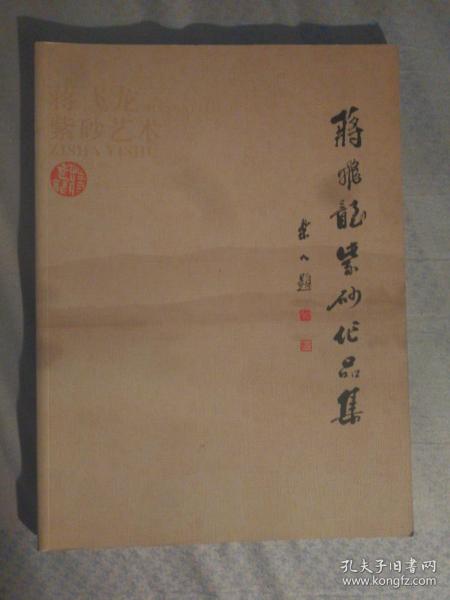 蒋飞龙
紫砂艺术
ZISHA YISHU
蔣飛龍紫砂作品集
孔夫子旧书网
www.kongfz.com